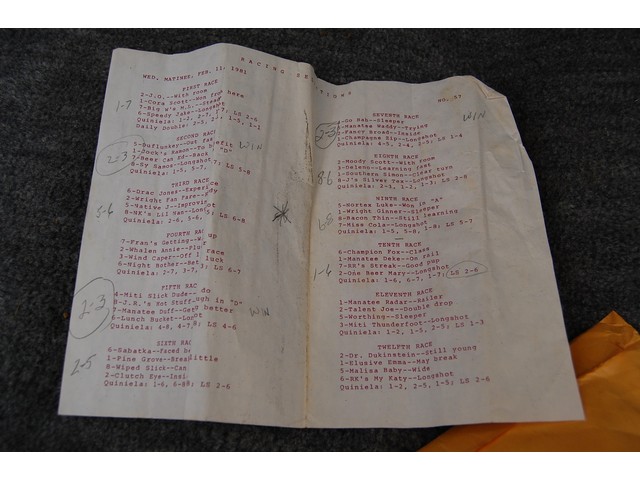 RACING SELECTIONS
WED. MATINEE, FEB. 11, 1981
FIRST RACE
2-J.O.--With room
1-Cora Scott--Won from here
7-Big W's M.S.--Steady
6-Speedy Jake--Longshot
Quiniela: 1-2, 2-7, 1-7; LS 2-6
Daily Double: 2-5, 2-1, 1-5, 1-1
1-7
SECOND RACE
5-Bufflunkey--Out
1-Jock's Ramon--To benefit
7-Beer Can Ed--Back
8-Sy Ramos--Longshot
Quiniela: 1-5, 5-7, LS 5-8
2-3
WIN
THIRD RACE
6-Drac Jones--Experience
2-Wright Fan Fare--
5-Native J--Improving
8-HK's Lil Has--Longshot
Quiniela: 2-6, 5-6; LS 6-8
5-6
FOURTH RACE
7-Fran's Getting--up
2-Whalen Annie--
3-Wind Caper--Off race
6-Night Bother--Bet luck
Quiniela: 2-7, 3-7, LS 6-7
FIFTH RACE
4-Miti Slick Dude--do
8-J.R.'s Hot Stuff--in "D"
7-Manatee Duff--Gets better
6-Lunch Bucket--Longshot
Quiniela: 4-8, 4-7, LS 4-6
2-3
WIN
SIXTH RACE
6-Sabatka--Faced
1-Pine Grove--Break little
8-Wiped Slick--Can
2-Clutch Eye--Inside
Quiniela: 1-6, 6-8; LS 2-6
2-5
NO. 57
SEVENTH RACE
4-Go Hah--Sleeper
2-Manatee Waddy--Trying
5-Fancy Broad--Inside
1-Champagne Sip--Longshot
Quiniela: 4-5, 2-4, 2-5; LS 1-4
2-3
WIN
EIGHTH RACE
2-Moody Scott--With room
3-Deleno--Learning fast
1-Southern Simon--Clear turn
8-J's Silver Tax--Longshot
Quiniela: 2-3, 1-2, 1-3; LS 2-8
8-6
NINTH RACE
5-Hortes Luke--Won in "A"
1-Wright Ginner--Sleeper
8-Bacon Thin--Still learning
7-Miss Cola--Longshot
Quiniela: 1-5, 5-8, 1-8; LS 5-7
TENTH RACE
6-Champion Fox--Class
1-Manatee Deke--On rail
7-RK's Streak--Good pup
2-One Beer Mary--Longshot
Quiniela: 1-6, 6-7, 1-7; LS 2-6
1-6
ELEVENTH RACE
1-Manatee Radar--Railer
2-Talent Joe--Double drop
5-Worthing--Sleeper
3-Miti Thunderfoot--Longshot
Quiniela: 1-2, 1-5, 2-5; LS 1-3
TWELFTH RACE
2-Dr. Dukinstein--Still young
1-Elusive Emma--May break
5-Malisa Baby--Wide
6-RK's My Katy--Longshot
Quiniela: 1-2, 2-5, 1-5; LS 2-6